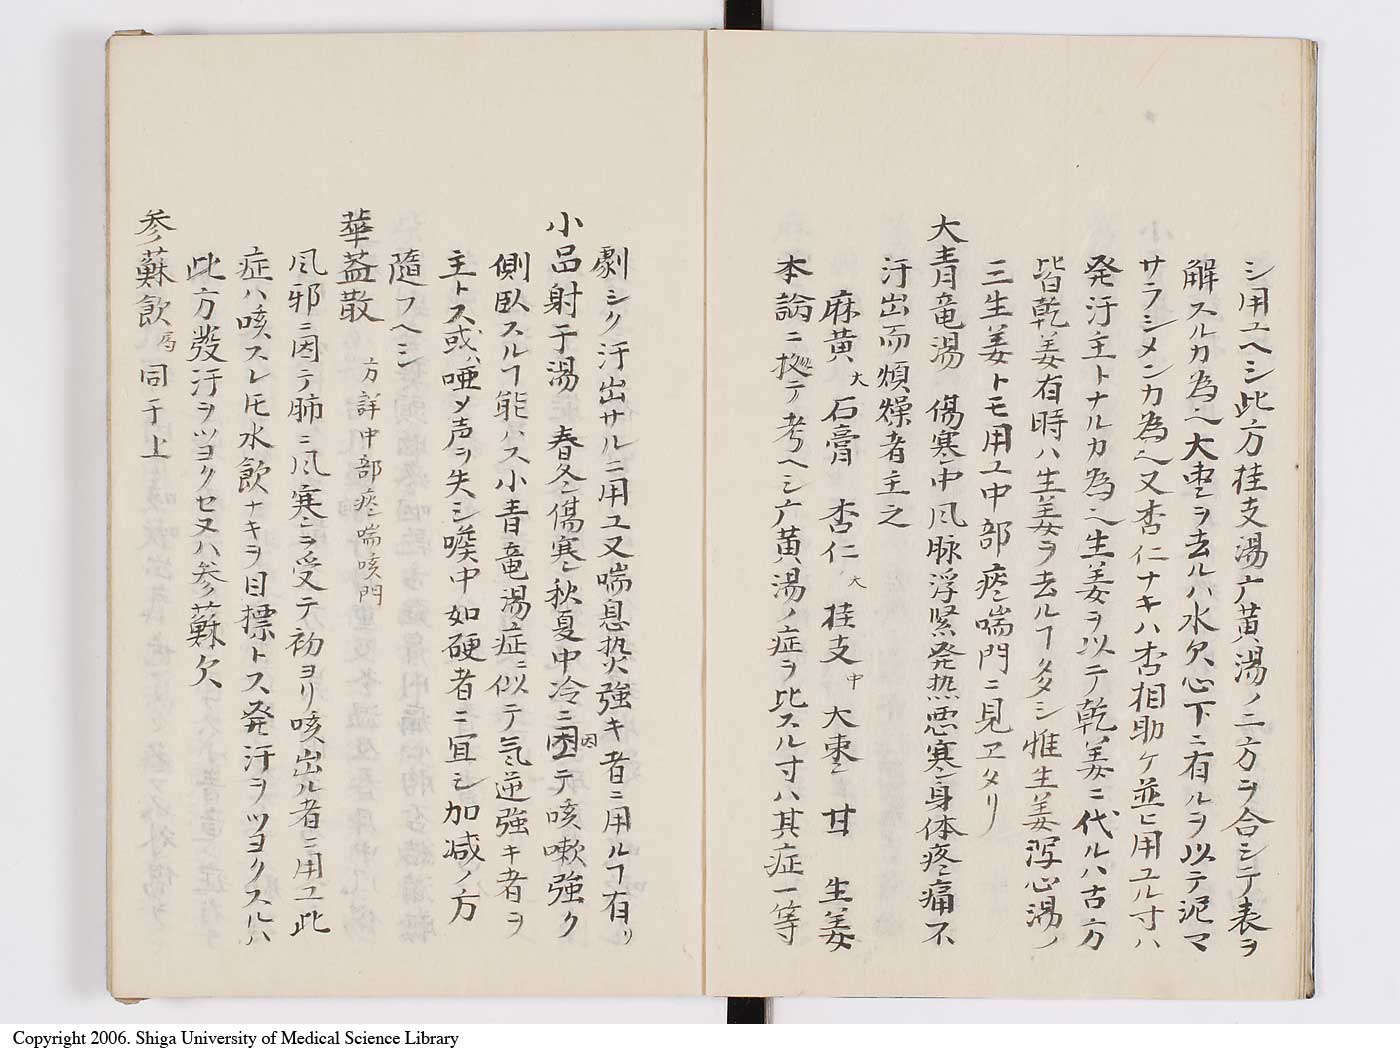 シ用ユヘシ此方桂支湯广黄湯ノ二方ヲ合シテ表ヲ
解スルカ為也大枣ヲ去ルハ水欠心下ニ有ルヲ以テ泥マ
サラシメンカ為也又杏仁ナキハ杏相助ケ並ヒ用ユル寸ハ
発汗主トナルカ為也生姜ヲ以テ乾姜ニ代ルハ古方
皆乾姜有時ハ生姜ヲ去ルヿ多シ惟生姜泻心湯ノ
三生姜トモ用ユ中部痰喘門ニ見ヱタリ
大青竜湯 傷寒中风脉浮緊発热悪寒身体疼痛不
汗出而煩燥者主之
麻黄大 石膏 杏仁大 桂支中 大枣 甘 生姜
本論ニ拠テ考ヘシ广黄湯ノ症ヲ比スル寸ハ其症一等
劇シク汗出サルニ用ユ又喘息热強キ者ニ用ルヿ有リ
小品射干湯 春冬傷寒秋夏中冷ニ因テ咳嗽強ク
因
側臥スルヿ能ハス小青竜湯症ニ似テ气逆強キ者ヲ
主トス或ハ唖メ声ヲ失シ喉中如硬者ニ宜シ加减ノ方
隨フヘシ
華蓋散 方詳中部痰喘咳門
风邪ニ因テ肺ニ风寒ヲ受テ初ヨリ咳出ル者ニ用ユ此
症ハ咳スレ𪜈水飲ナキヲ目標トス発汗ヲツヨクスルハ
此方發汗ヲツヨクセヌハ参蘇欠
参蘇飲 局 同于上
Copyright 2006. Shiga University of Medical Science Library